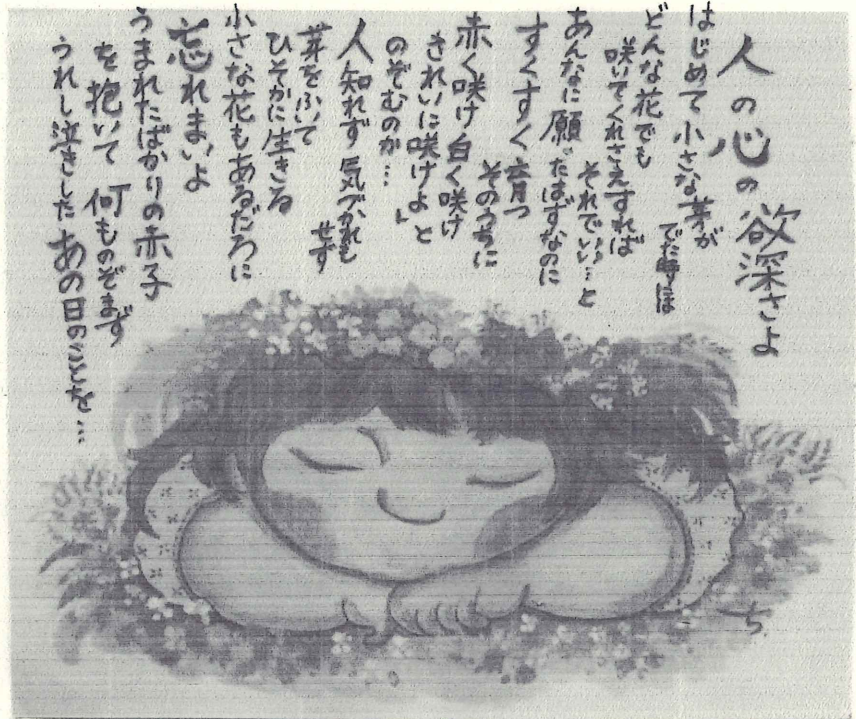 人の心の欲深さよ
はじめて小さな芽が
でた時は
どんな花でも
咲いてくれさえすれば
それでいい…と
あんなに願ったはずなのに
すくすく育つ
そのうちに
赤く咲け白く咲け
きれいに咲けよと
のぞむのか…
人知れず気づかれも
せず
芽をふいて
ひそかに生きる
小さな花もあるだろに
忘れまいよ
うまれたばかりの赤子
を抱いて何ものぞまず
うれし泣きしたあの日のことを…